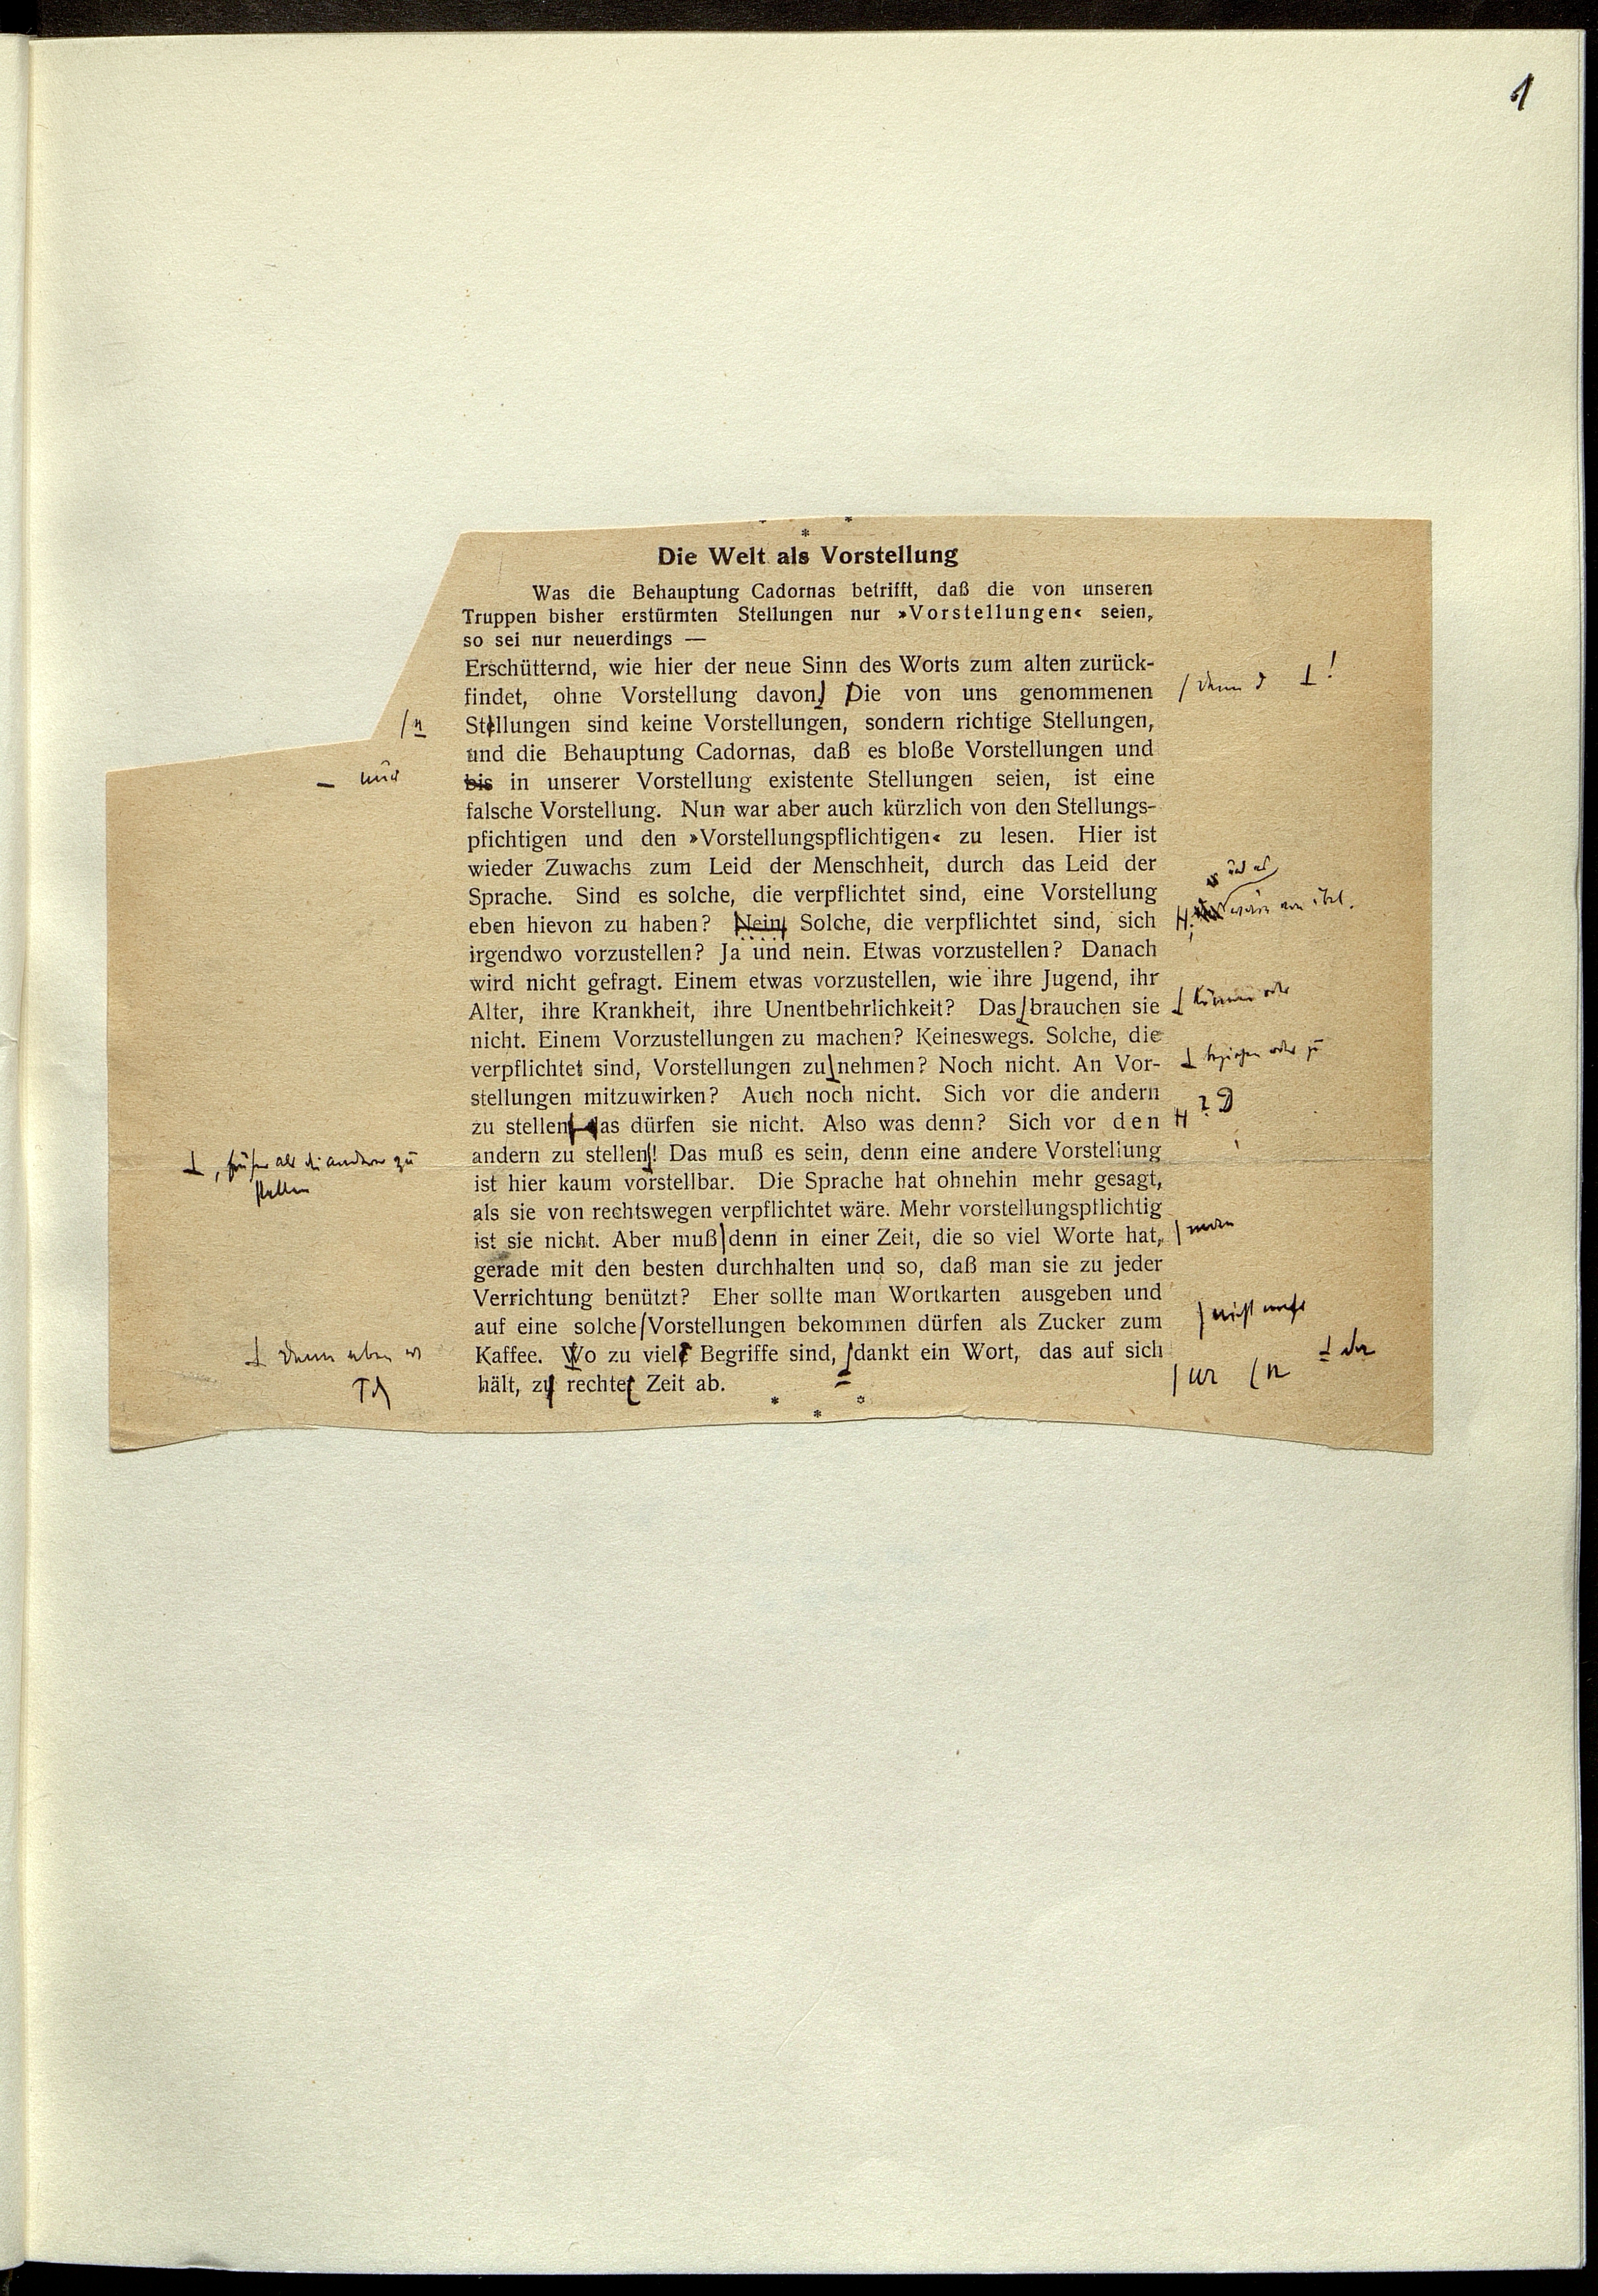 1
Die Welt als Vorstellung
Was die Behauptung Cadornas betrifft, daß die von unseren
Truppen bisher erstürmten Stellungen nur »Vorstellungen« seien,
so sei nur neuerdings —
Erschütternd, wie hier der neue Sinn des Worts zum alten zurück-
findet, ohne Vorstellung davon. Die von uns genommenen
denn d !
Stellungen sind keine Vorstellungen, sondern richtige Stellungen,
und die Behauptung Cadornas, daß es bloße Vorstellungen und
nur
bis in unserer Vorstellung existente Stellungen seien, ist eine
falsche Vorstellung. Nun war aber auch kürzlich von den Stellungs-
pfichtigen und den »Vorstellungspflichtigen« zu lesen. Hier ist
wieder Zuwachs zum Leid der Menschheit, durch das Leid der
Sprache. Sind es solche, die verpflichtet sind, eine Vorstellung
eben hievon zu haben? Nein, Solche, die verpflichtet sind, sich
irgendwo vorzustellen? Ja und nein. Etwas vorzustellen? Danach
wird nicht gefragt. Einem etwas vorzustellen, wie ihre Jugend, ihr
Alter, ihre Krankheit, ihre Unentbehrlichkeit? Das brauchen sie
können oder
nicht. Einem Vorzustellungen zu machen? Keineswegs. Solche, die
verpflichtet sind, Vorstellungen zu nehmen? Noch nicht. An Vor-
oder zu
stellungen mitzuwirken? Auch noch nicht. Sich vor die andern
zu stellen, das dürfen sie nicht. Also was denn? Sich vor den
? D
andern zu stellen! Das muß es sein, denn eine andere Vorstellung
, früher als die andern zu
stellen
ist hier kaum vorstellbar. Die Sprache hat ohnehin mehr gesagt,
als sie von rechtswegen verpflichtet wäre. Mehr vorstellungspflichtig
ist sie nicht. Aber muß denn in einer Zeit, die so viel Worte hat,
man
gerade mit den besten durchhalten und so, daß man sie zu jeder
Verrichtung benützt? Eher sollte man Wortkarten ausgeben und
auf eine solche Vorstellungen bekommen dürfen als Zucker zum
nicht mehr
Kaffee. Wo zu viele Begriffe sind, dankt ein Wort, das auf sich
Denn eben
hält, zu rechter Zeit ab.